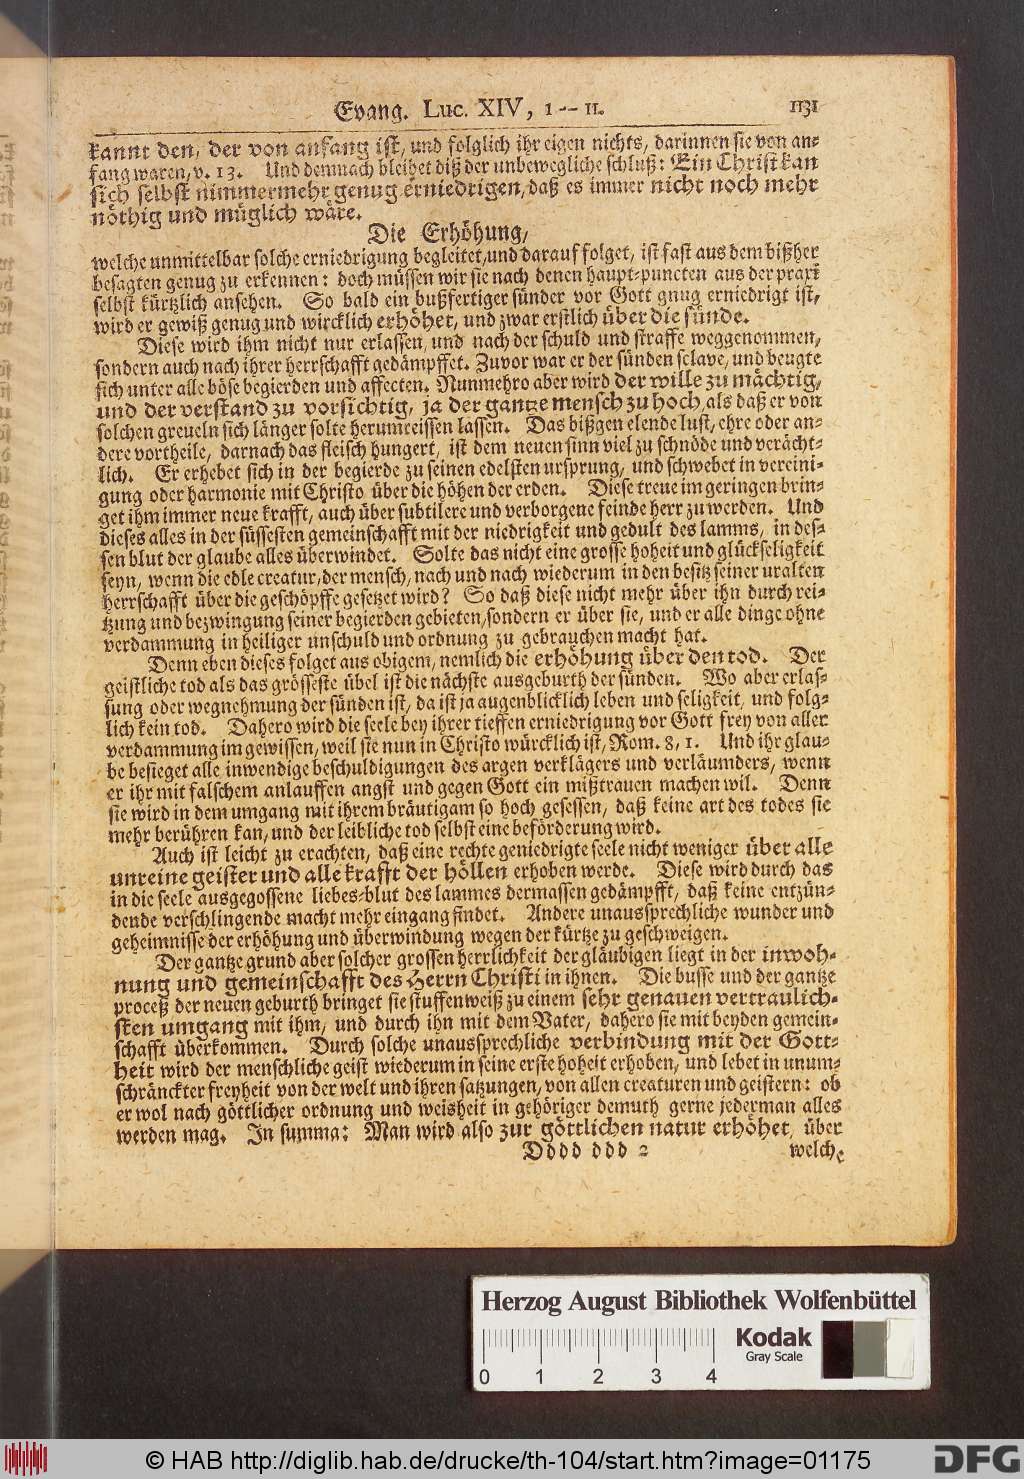 Evang. Luc. XIV, 1--11. 1131
kannt den, der von anfang ist, und folglich ihr eigen nichts, darinnen sie von an-
fang waren, v. 13. Und demnach bleibet diß der unbewegliche schluß: Ein Christ kan
sich selbst nimmermehr genug erniedrigen, daß es immer nicht noch mehr
nöthig und müglich wäre.
Die Erhöhung,
welche unmittelbar solche erniedrigung begleitet, und darauf folget, ist fast aus dem bißher
besagten genug zu erkennen: doch müssen wir sie nach denen haupt-puncten aus der praxi
selbst kürtzlich ansehen. So bald ein bußfertiger sünder vor Gott gnug erniedrigt ist,
wird er gewiß genug und wircklich erhöhet, und zwar erstlich über die sünde.
Diese wird ihm nicht nur erlassen, und nach der schuld und straffe weggenommen,
sondern auch nach ihrer herrschafft gedämpffet. Zuvor war er der sünden sclave, und beugte
sich unter alle böse begierden und affecten. Nunmehro aber wird der wille zu mächtig,
und der verstand zu vorsichtig, ja der gantze mensch zu hoch, als daß er von
solchen greueln sich länger solte herumreissen lassen. Das bißgen elende lust, ehre oder an-
dere vortheile, darnach das fleisch hungert, ist dem neuen sinn viel zu schnöde und verächt-
lich. Er erhebet sich in der begierde zu seinen edelsten ursprung, und schwebet in vereini-
gung oder harmonie mit Christo über die höhen der erden. Diese treue im geringen brin-
get ihm immer neue krafft, auch über subtilere und verborgene feinde herr zu werden. Und
dieses alles in der süssesten gemeinschafft mit der niedrigkeit und gedult des lamms, in des-
sen blut der glaube alles überwindet. Solte das nicht eine grosse hoheit und glückseligkeit
seyn, wenn die edle creatur, der mensch, nach und nach wiederum in den besitz seiner uralten
herrschafft über die geschöpffe gesetzet wird? So daß diese nicht mehr über ihn durch rei-
tzung und bezwingung seiner begierden gebieten, sondern er über sie, und er alle dinge ohne
verdammung in heiliger unschuld und ordnung zu gebrauchen macht hat.
Denn eben dieses folget aus obigem, nemlich die erhöhung über den tod. Der
geistliche tod als das grösseste übel ist die nächste ausgeburth der sünden. Wo aber erlas-
sung oder wegnehmung der sünden ist, da ist ja augenblicklich leben und seligkeit, und folg-
lich kein tod. Dahero wird die seele bey ihrer tieffen erniedrigung vor Gott frey von aller
verdammung im gewissen, weil sie nun in Christo würcklich ist, Rom. 8, 1. Und ihr glau-
be besieget alle inwendige beschuldigungen des argen verklägers und verläumders, wenn
er ihr mit falschem anlauffen angst und gegen Gott ein mißtrauen machen wil. Denn
sie wird in dem umgang mit ihrem bräutigam so hoch gesessen, daß keine art des todes sie
mehr berühren kan, und der leibliche tod selbst eine beförderung wird.
Auch ist leicht zu erachten, daß eine rechte geniedrigte seele nicht weniger über alle
unreine geister und alle krafft der höllen erhoben werde. Diese wird durch das
in die seele ausgegossene liebes-blut des lammes dermassen gedämpfft, daß keine entzün-
dende verschlingende macht mehr eingang findet. Andere unaussprechliche wunder und
geheimnisse der erhöhung und überwindung wegen der kürtze zu geschweigen.
Der gantze grund aber solcher grossen herrlichkeit der gläubigen liegt in der inwoh-
nung und gemeinschafft des Herrn Christi in ihnen. Die busse und der gantze
proceß der neuen geburth bringet sie stuffenweiß zu einem sehr genauen vertraulich-
sten umgang mit ihm, und durch ihn mit dem Vater, dahero sie mit beyden gemein-
schafft überkommen. Durch solche unaussprechliche verbindung mit der Gott-
heit wird der menschliche geist wiederum in seine erste hoheit erhoben, und lebet in unum-
schränckter freyheit von der welt und ihren satzungen, von allen creaturen und geistern: ob
er wol nach göttlicher ordnung und weisheit in gehöriger demuth gerne jederman alles
werden mag. In summa: Man wird also zur göttlichen natur erhöhet, über
Dddd ddd 2 welche
Herzog August Bibliothek Wolfenbüttel
Kodak
Gray Scale
0 1 2 3 4
© HAB http://diglib.hab.de/drucke/th-104/start.htm?image=01175
DFG